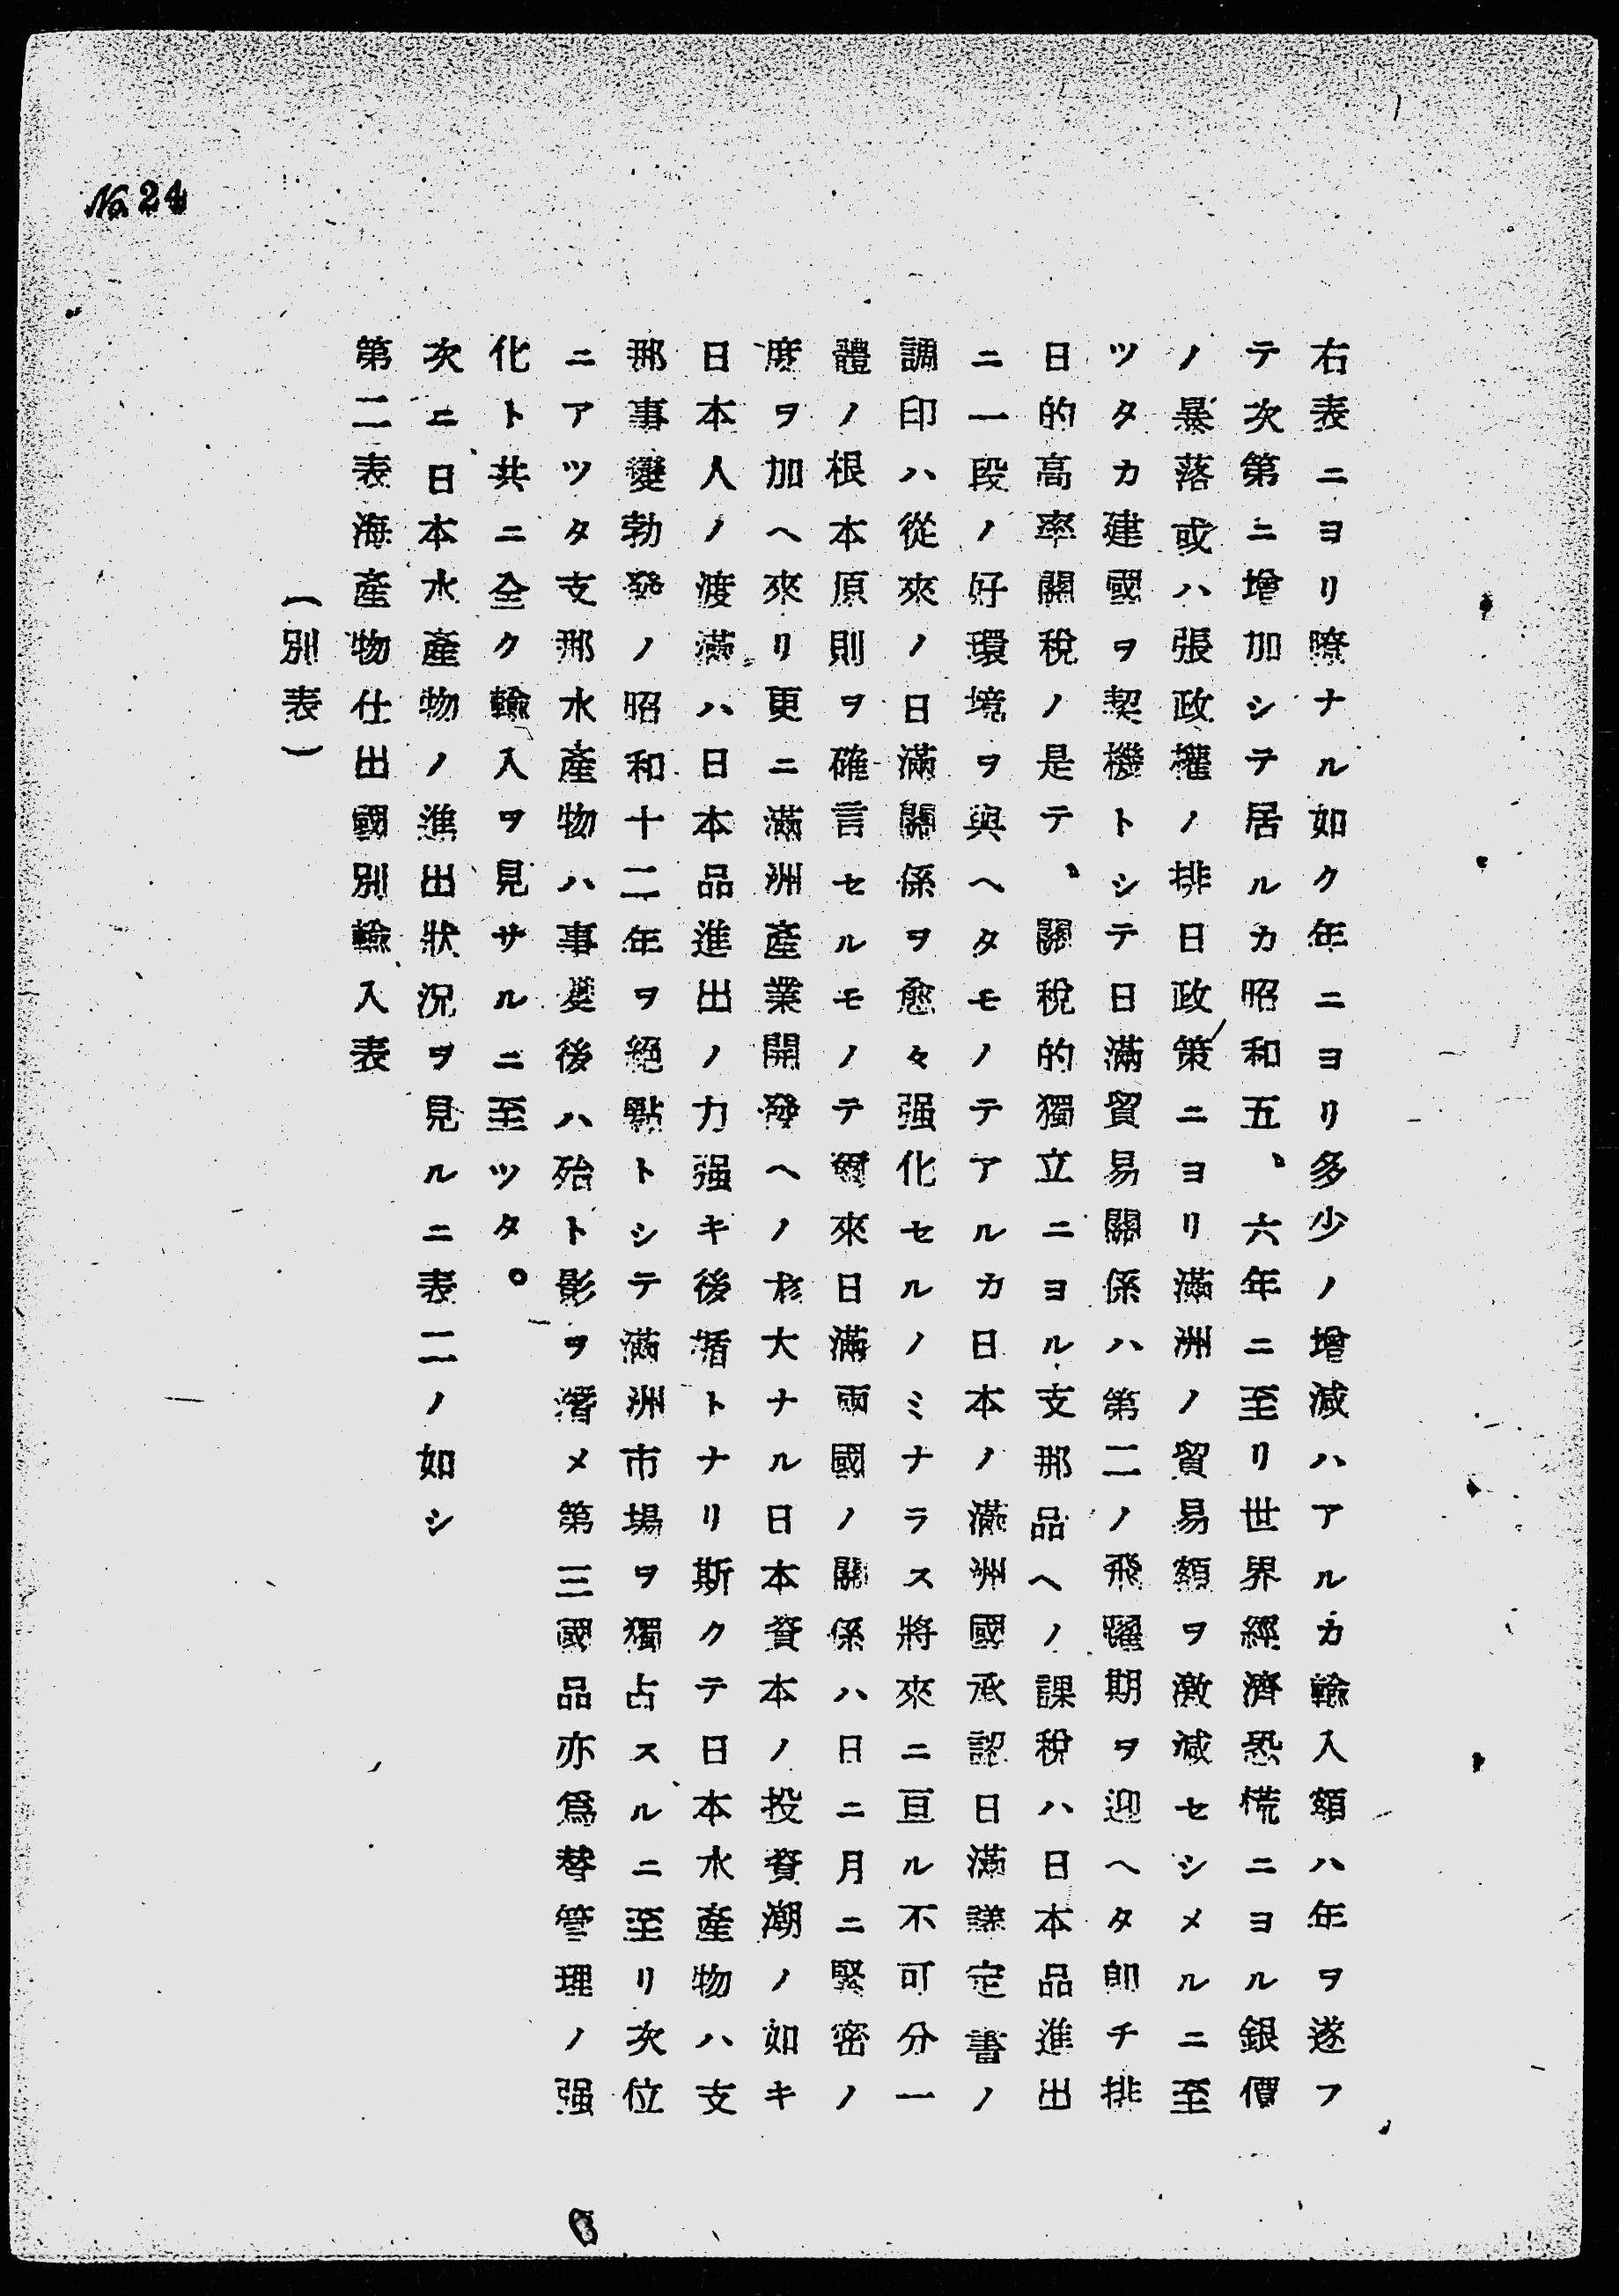 No. 24
右表ニヨリ瞭ナル如ク年ニヨリ多少ノ增減ハアルカ輸入額ハ年ヲ逐フ
テ次第ニ增加シテ居ルカ昭和五、六年ニ至リ世界經濟恐慌ニヨル銀價
ノ暴落或ハ張政權ノ排日政策ニヨリ滿洲ノ貿易額ヲ激減セシメルニ至
ツタカ建國ヲ契機トシテ日滿貿易關係ハ第二ノ飛躍期ヲ迎ヘタ卽チ排
日的高率關稅ノ是テ、關稅的獨立ニヨル支那品ヘノ課稅ハ日本品進出
ニ一段ノ好環境ヲ與ヘタモノテアルカ日本ノ滿洲國承認日滿議定書ノ
調印ハ從來ノ日滿關係ヲ愈々强化セルノミナラス將來ニ亘ル不可分一
體ノ根本原則ヲ確言セルモノテ爾來日滿兩國ノ關係ハ日ニ月ニ緊密ノ
度ヲ加ヘ來リ更ニ滿洲產業開發ヘノ厖大ナル日本資本ノ投資潮ノ如キ
日本人ノ渡滿ハ日本品進出ノ力强キ後楯トナリ斯クテ日本水產物ハ支
那事變勃發ノ昭和十二年ヲ絕點トシテ滿洲市場ヲ獨占スルニ至リ次位
ニアツタ支那水產物ハ事變後ハ殆ト影ヲ潛メ第三國品亦爲替管理ノ强
化ト共ニ全ク輸入ヲ見サルニ至ツタ。
次ニ日本水產物ノ進出狀況ヲ見ルニ表二ノ如シ
第二表海產物仕出國別輸入表
(別表)